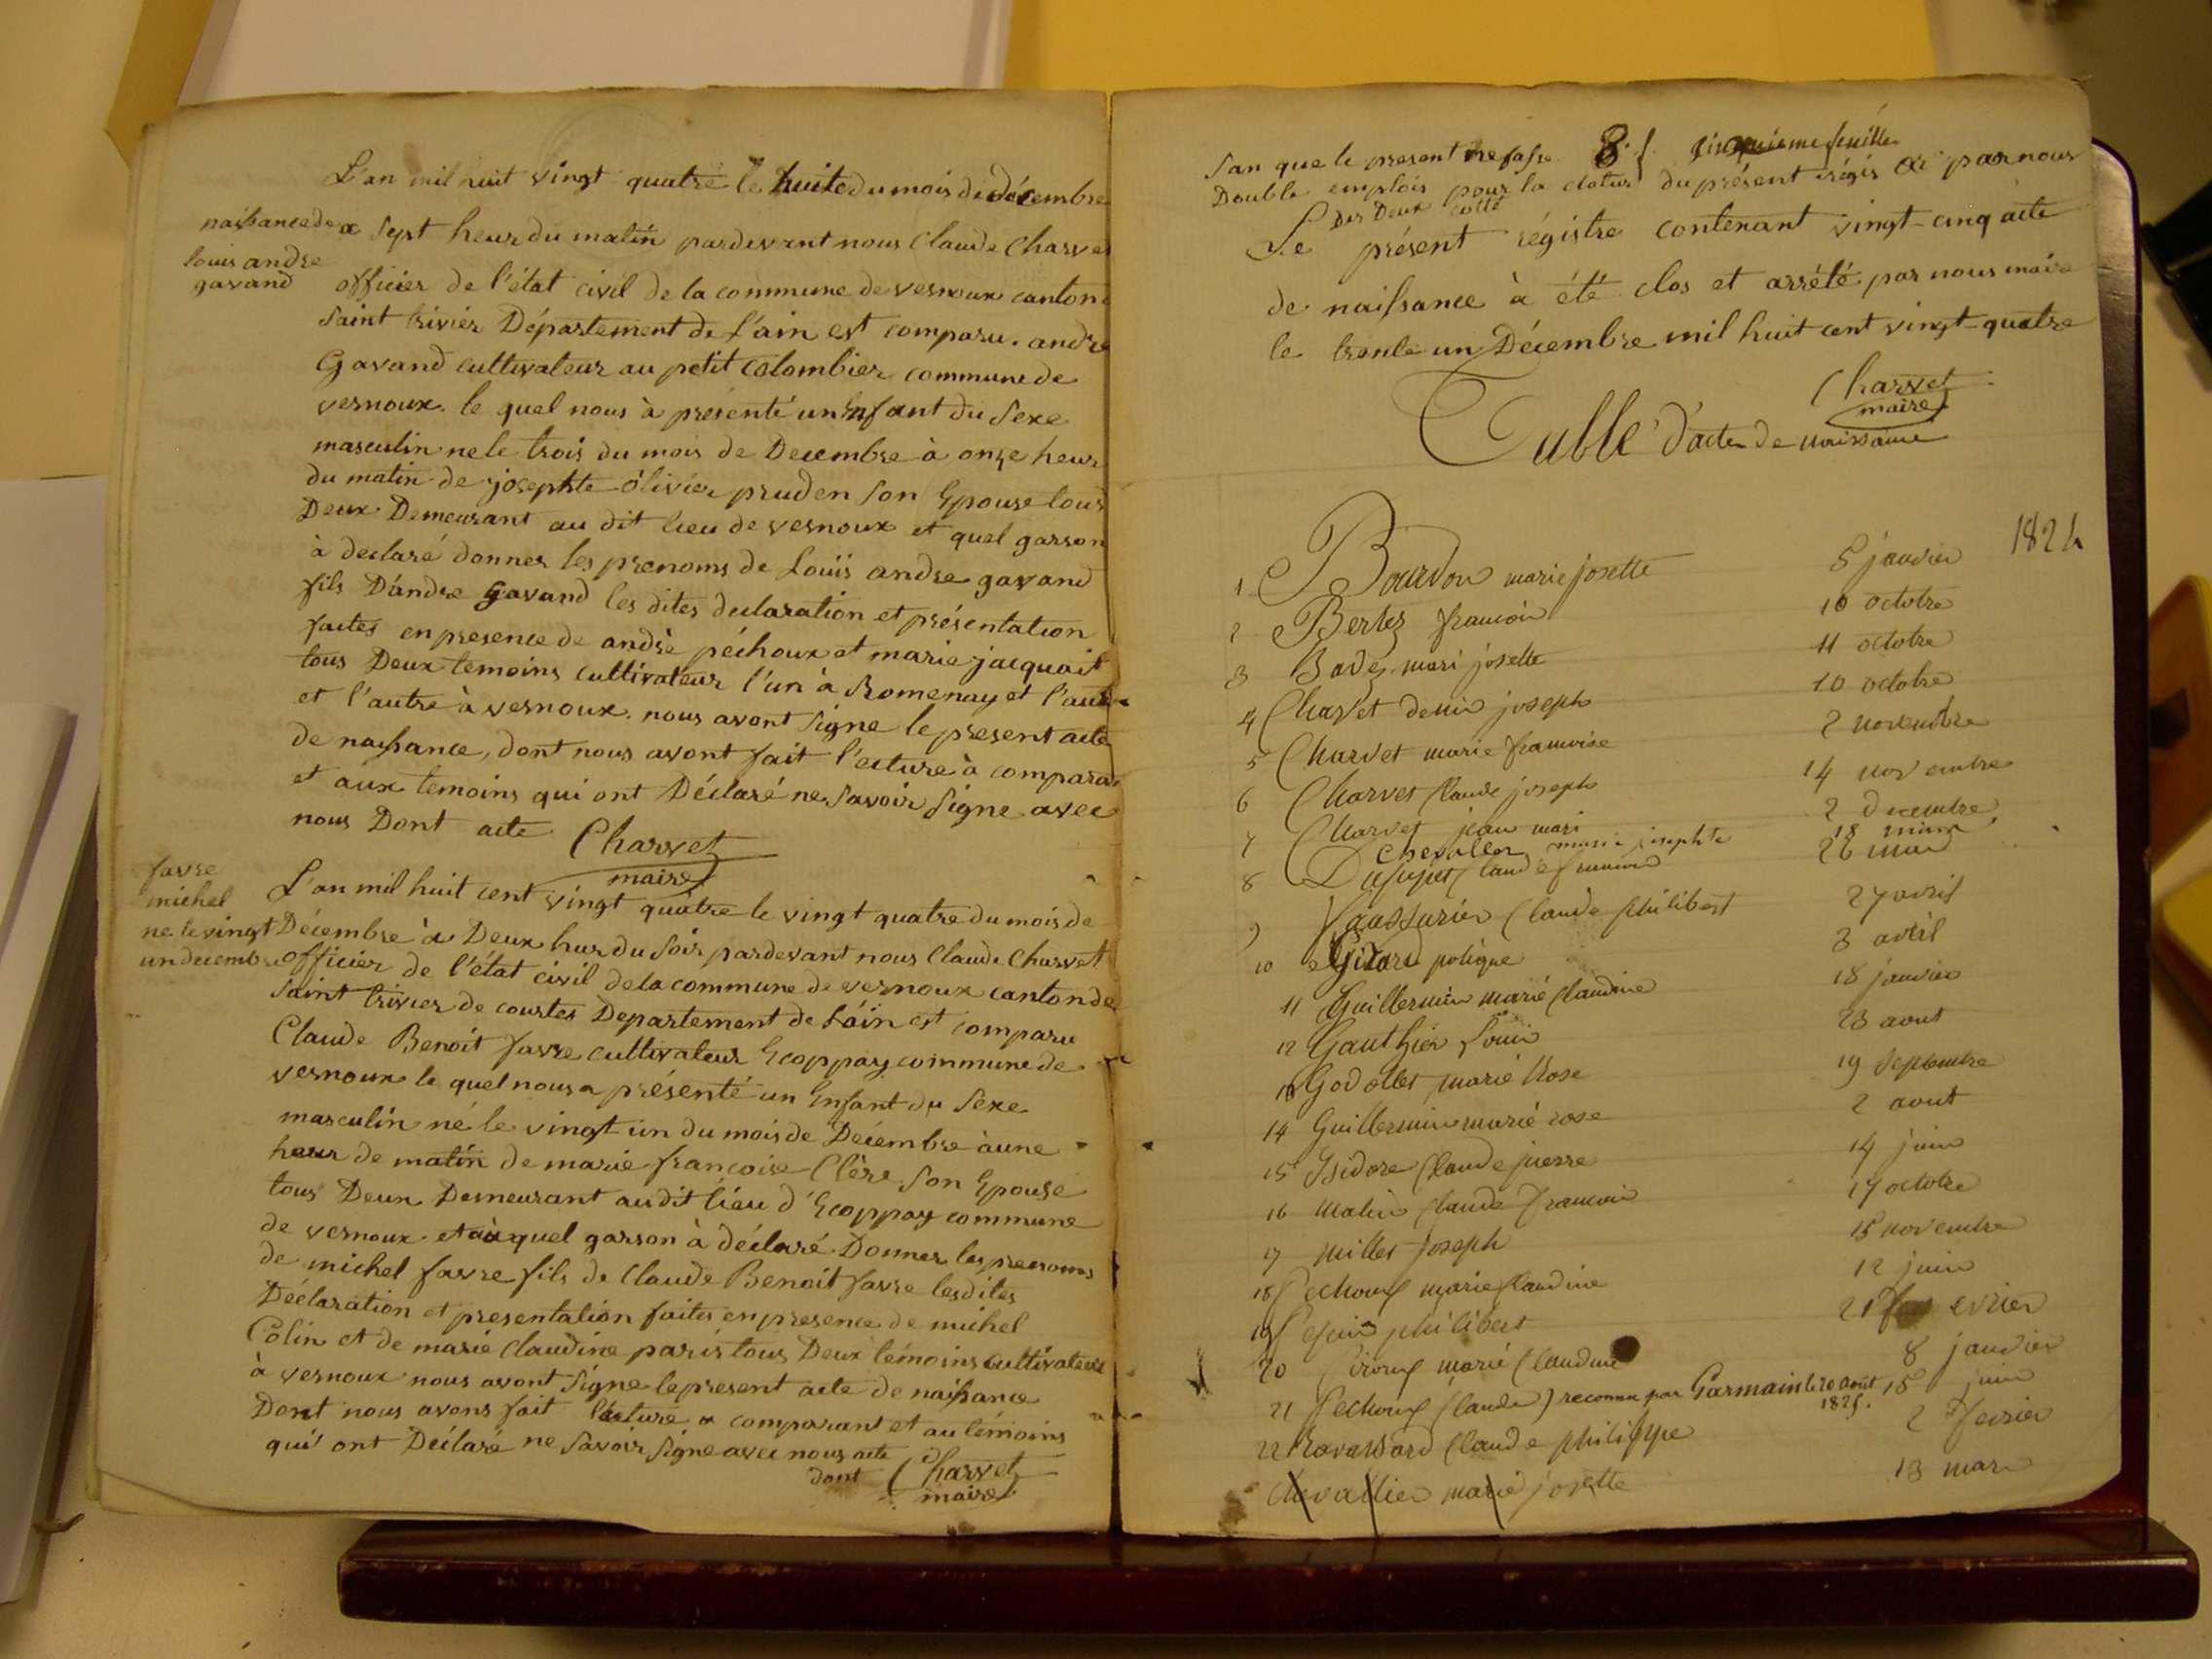 L'an mil huit vingt quatre le huite du mois de décembre
naissance de
louis andre
gavand
a sept heur du matin pardevant nous Claude Charvet
officier de l'état civil de la commune de vernoux canton
saint trivier Département de l'ain est comparu. andre
Gavand cultivateur au petit colombier commune de
vernoux. le quel nous à présenté un Enfant du Sexe
masculin ne le trois du mois de Decembre à onze heur
du matin de josephte ôlivier pruden son Epouse tous
Deux Demeurant au dit lieu de vernoux et quel garson
à declaré donner les prenoms de Louis andre gavand
fils D'andre gavand les dites declaration et présentation
faites en presence de andrè péchoux et marie jacquait
tous Deux temoins cultivateur l'un à Romenay et l'autre
et l'autre à vernoux. nous avont signe le present acte
de naissance, dont nous avont fait l'ecture à comparan
et aux temoins qui ont Déclaré ne savoir signe avec
nous Dont acte Charvet
maire
favre
michel
ne le vingt
un decembre
L'an mil huit cent vingt quatre le vingt quatre du mois de
Décembre à Deux hur du soir pardevant nous Claude Charvet
officier de l'état civil de la commune de vernoux canton de
saint trivier de courtes Departement de L'ain est comparu
Claude Benoit favre cultivateur Ecoppay commune de
vernoux le quel nous a présenté un Enfant du Sexe
masculin né le vingt un du mois de Décembre à une
heur de matin de marie françoise Clère son Epouse
tous Deux Demeurant au dit lieu d'Ecoppay commune
de vernoux et quel garson à déclaré Donner les prenoms
de michel favre fils de Claude Benoit favre les dites
Déclaration et presentation faites en presence de michel
Colin et de marie Claudine paris tous Deux témoins cultivateur
à vernoux nous avont signe le present acte de naissance
Dont nous avons fait lecture a comparant et au témoins
qui ont Déclaré ne savoir signe avec nous acte
dont Charvet
maire
san que le present ne fasse 8 cinquieme feuille
Double emplois pour la clotur du présent régis par nous
Des Deux cotté
Le présent régistre contenant vingt-cinq acte
de naissance à été clos et arrété par nous maire
le trente un Décembre mil huit cent vingt-quatre
Charvet
maire
Table d'acte de naissance
1824
1 Bourdon marie josette 5 janvier
2 Berter francois 10 octobre
3 Badez mari josette 11 octobre
4 Charvet denis joseph 10 octobre
5 Charvet marie francoise 2 novembre
6 Charvet Claude joseph 14 novembre
7 Charvet jean mari 2 decembre
Chevalier marie josephte 18 mars
8 Claude francois 26 mai
9 Claude philibert 27 avril
10 Girard 3 avril
11 Guillermin marie Claudine 18 janvier
12 Gauthier Louis 23 aout
13 Godollet marie Rose 19 septembre
14 Guillermin marie rose 2 aout
15 Isidore Claude pierre 14 juin
16 Matin Claude Francois 17 octobre
17 Millet joseph 15 novembre
18 Pechoux marie Claudine 12 juin
19 philibert 21 fevrier
20 marie Claudine 8 janvier
21 Pechoux (Claude) reconnu par Garmain le 20 aout 1825. 15 juin
22 Ravassard Claude philippe 2 fevrier
Chevallier marie josette 13 mars